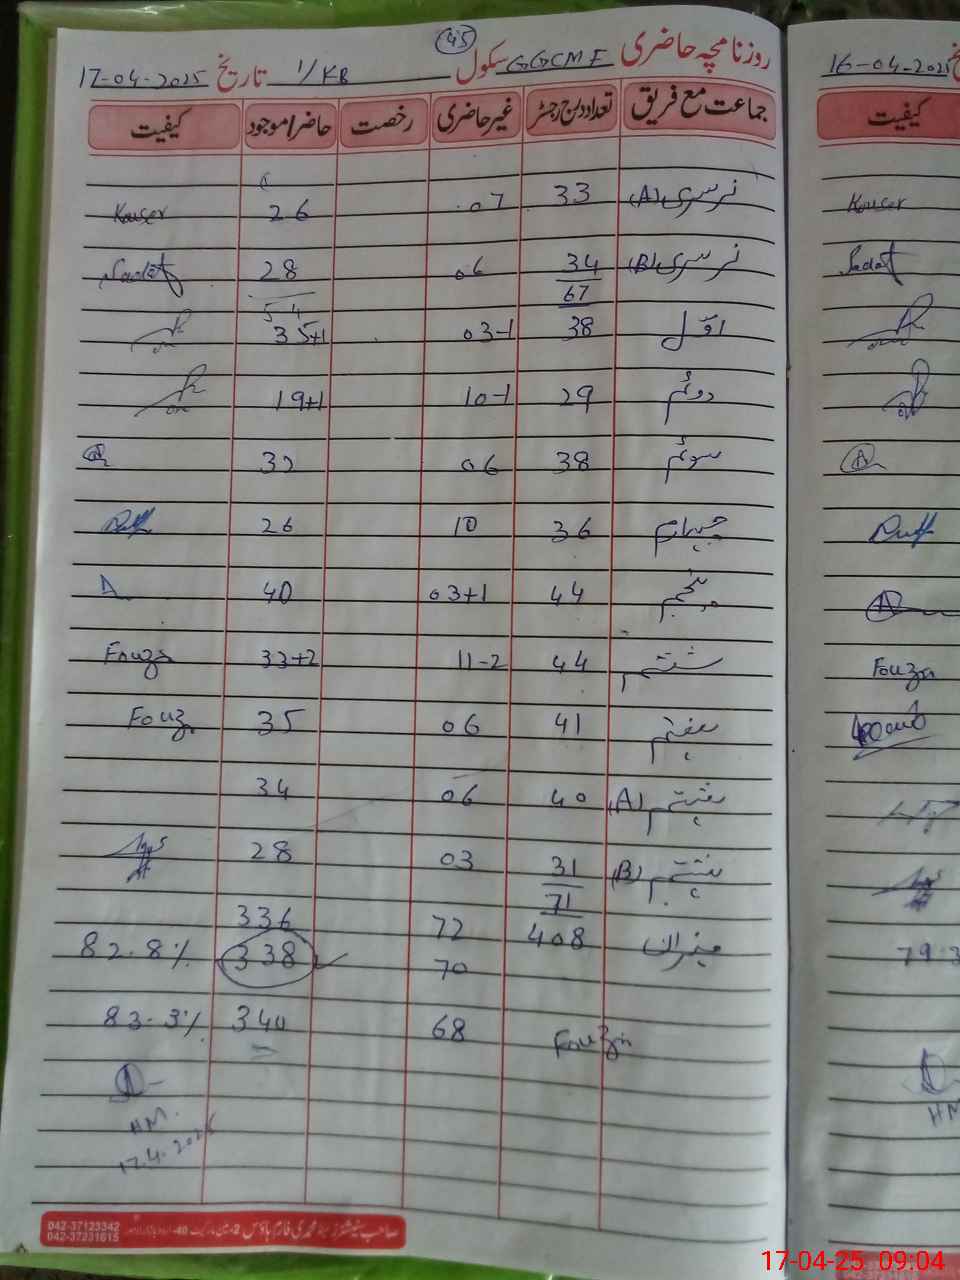 45
روزنامچہ حاضری سکول GGCMF 1/KB تاریخ 17-04-2025
جماعت مع فریق تعداد درج رجسٹر غیر حاضری رخصت حاضر/موجود کیفیت
نرسری (A) 33 07 26 Kouser
نرسری (B) 34 06 28 Sadat
67 54
اوّل 38 03-1 35+1
دوئم 29 10-1 19+1
سوئم 38 06 32
چہارم 36 10 26
پنجم 44 03+1 40
ششم 44 11-2 33+2 Fouzia
ہفتم 41 06 35 Fouz
ہشتم (A) 40 06 34
ہشتم (B) 31 03 28
71
میزان 408 72 336
70 338 82.8%
Fouzia 68 340 83.3%
HM
17.4.2025
042-37123342
042-37231615
16-04-2025
کیفیت
Kouser
Sadat
Fouzia
79.3
HM
17-04-25 09:04